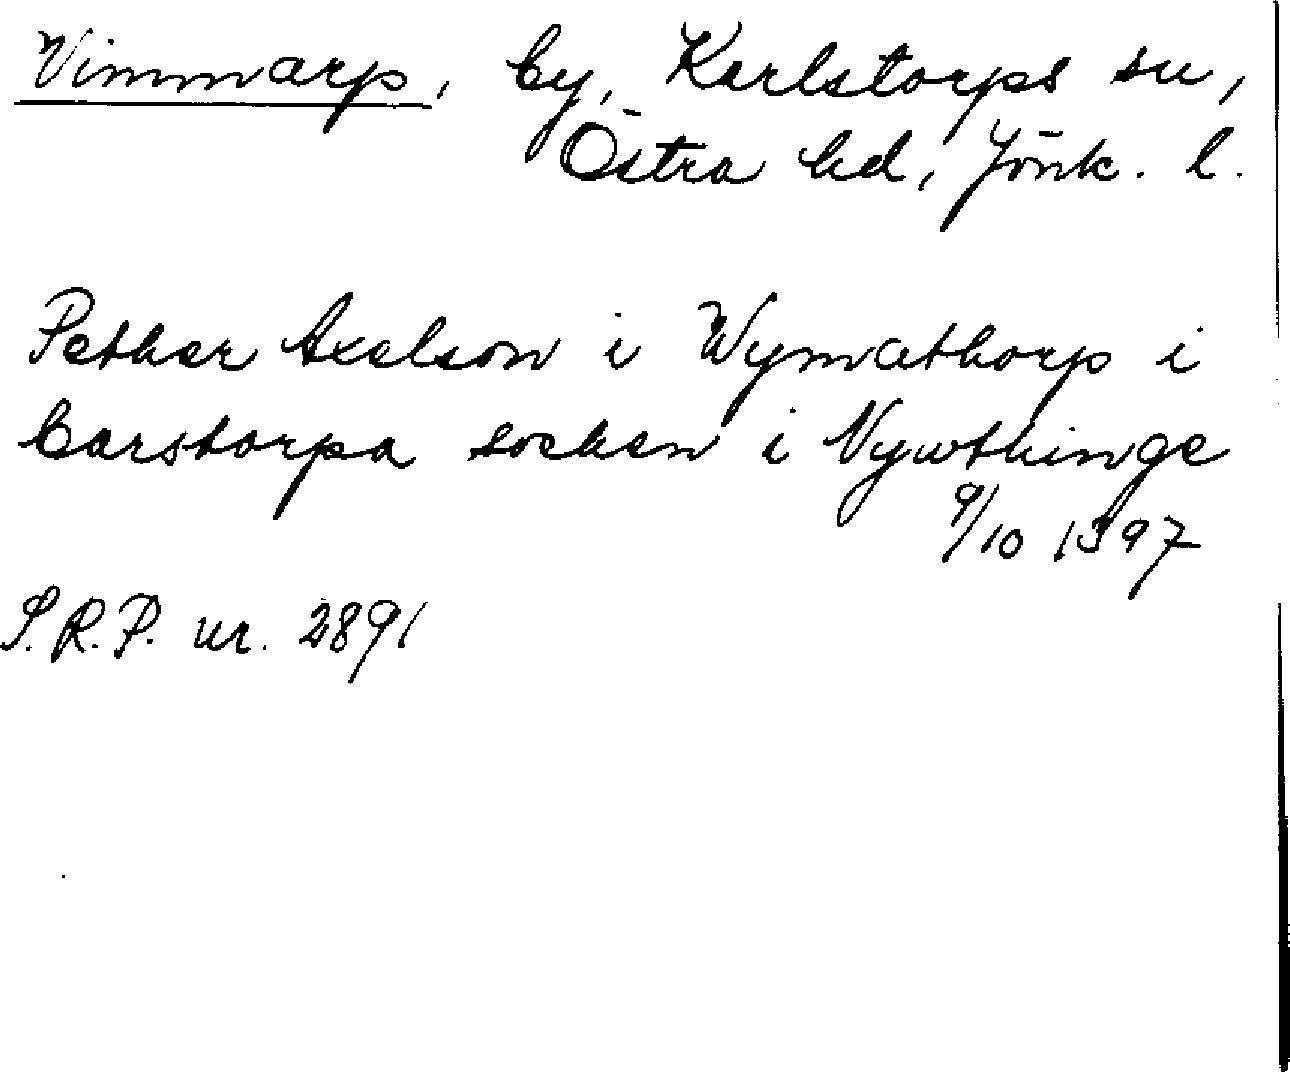 Vimmarp, by, Karlstorps sn,
Östra hd, Jönk. l.
Pether Axelson i Wymathorp i
Carstorpa socken i Nywthinge
9/10 1397
S.R.P. nr. 2891